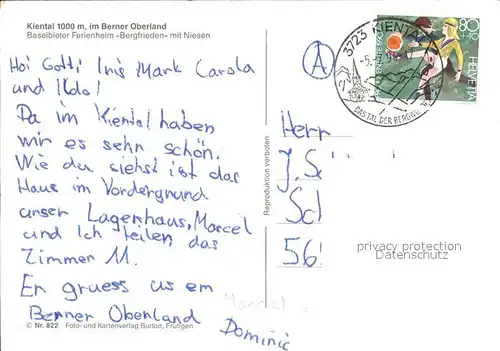 Kiental 1000 m, im Berner Oberland
Baselbieter Ferienheim «Bergfrieden» mit Niesen
Hoi Gotti Iris Mark Carola
und Ildo!
Da im Kiental haben
wir es sehn schön.
Wie du siehst ist das
Haus im Vordergrund
unser Lagerhaus, Marcel
und Ich teilen das
Zimmer 11.
En gruess us em
Berner Oberland
Marcel
Dominic
© Nr. 822 Foto- und Kartenverlag Burlon, Frutigen
Reproduktion verboten
A
3723 KIENTAL
DAS TAL DER
80
HELVETIA
Herr
J. S
Sc
56
privacy protection
Datenschutz